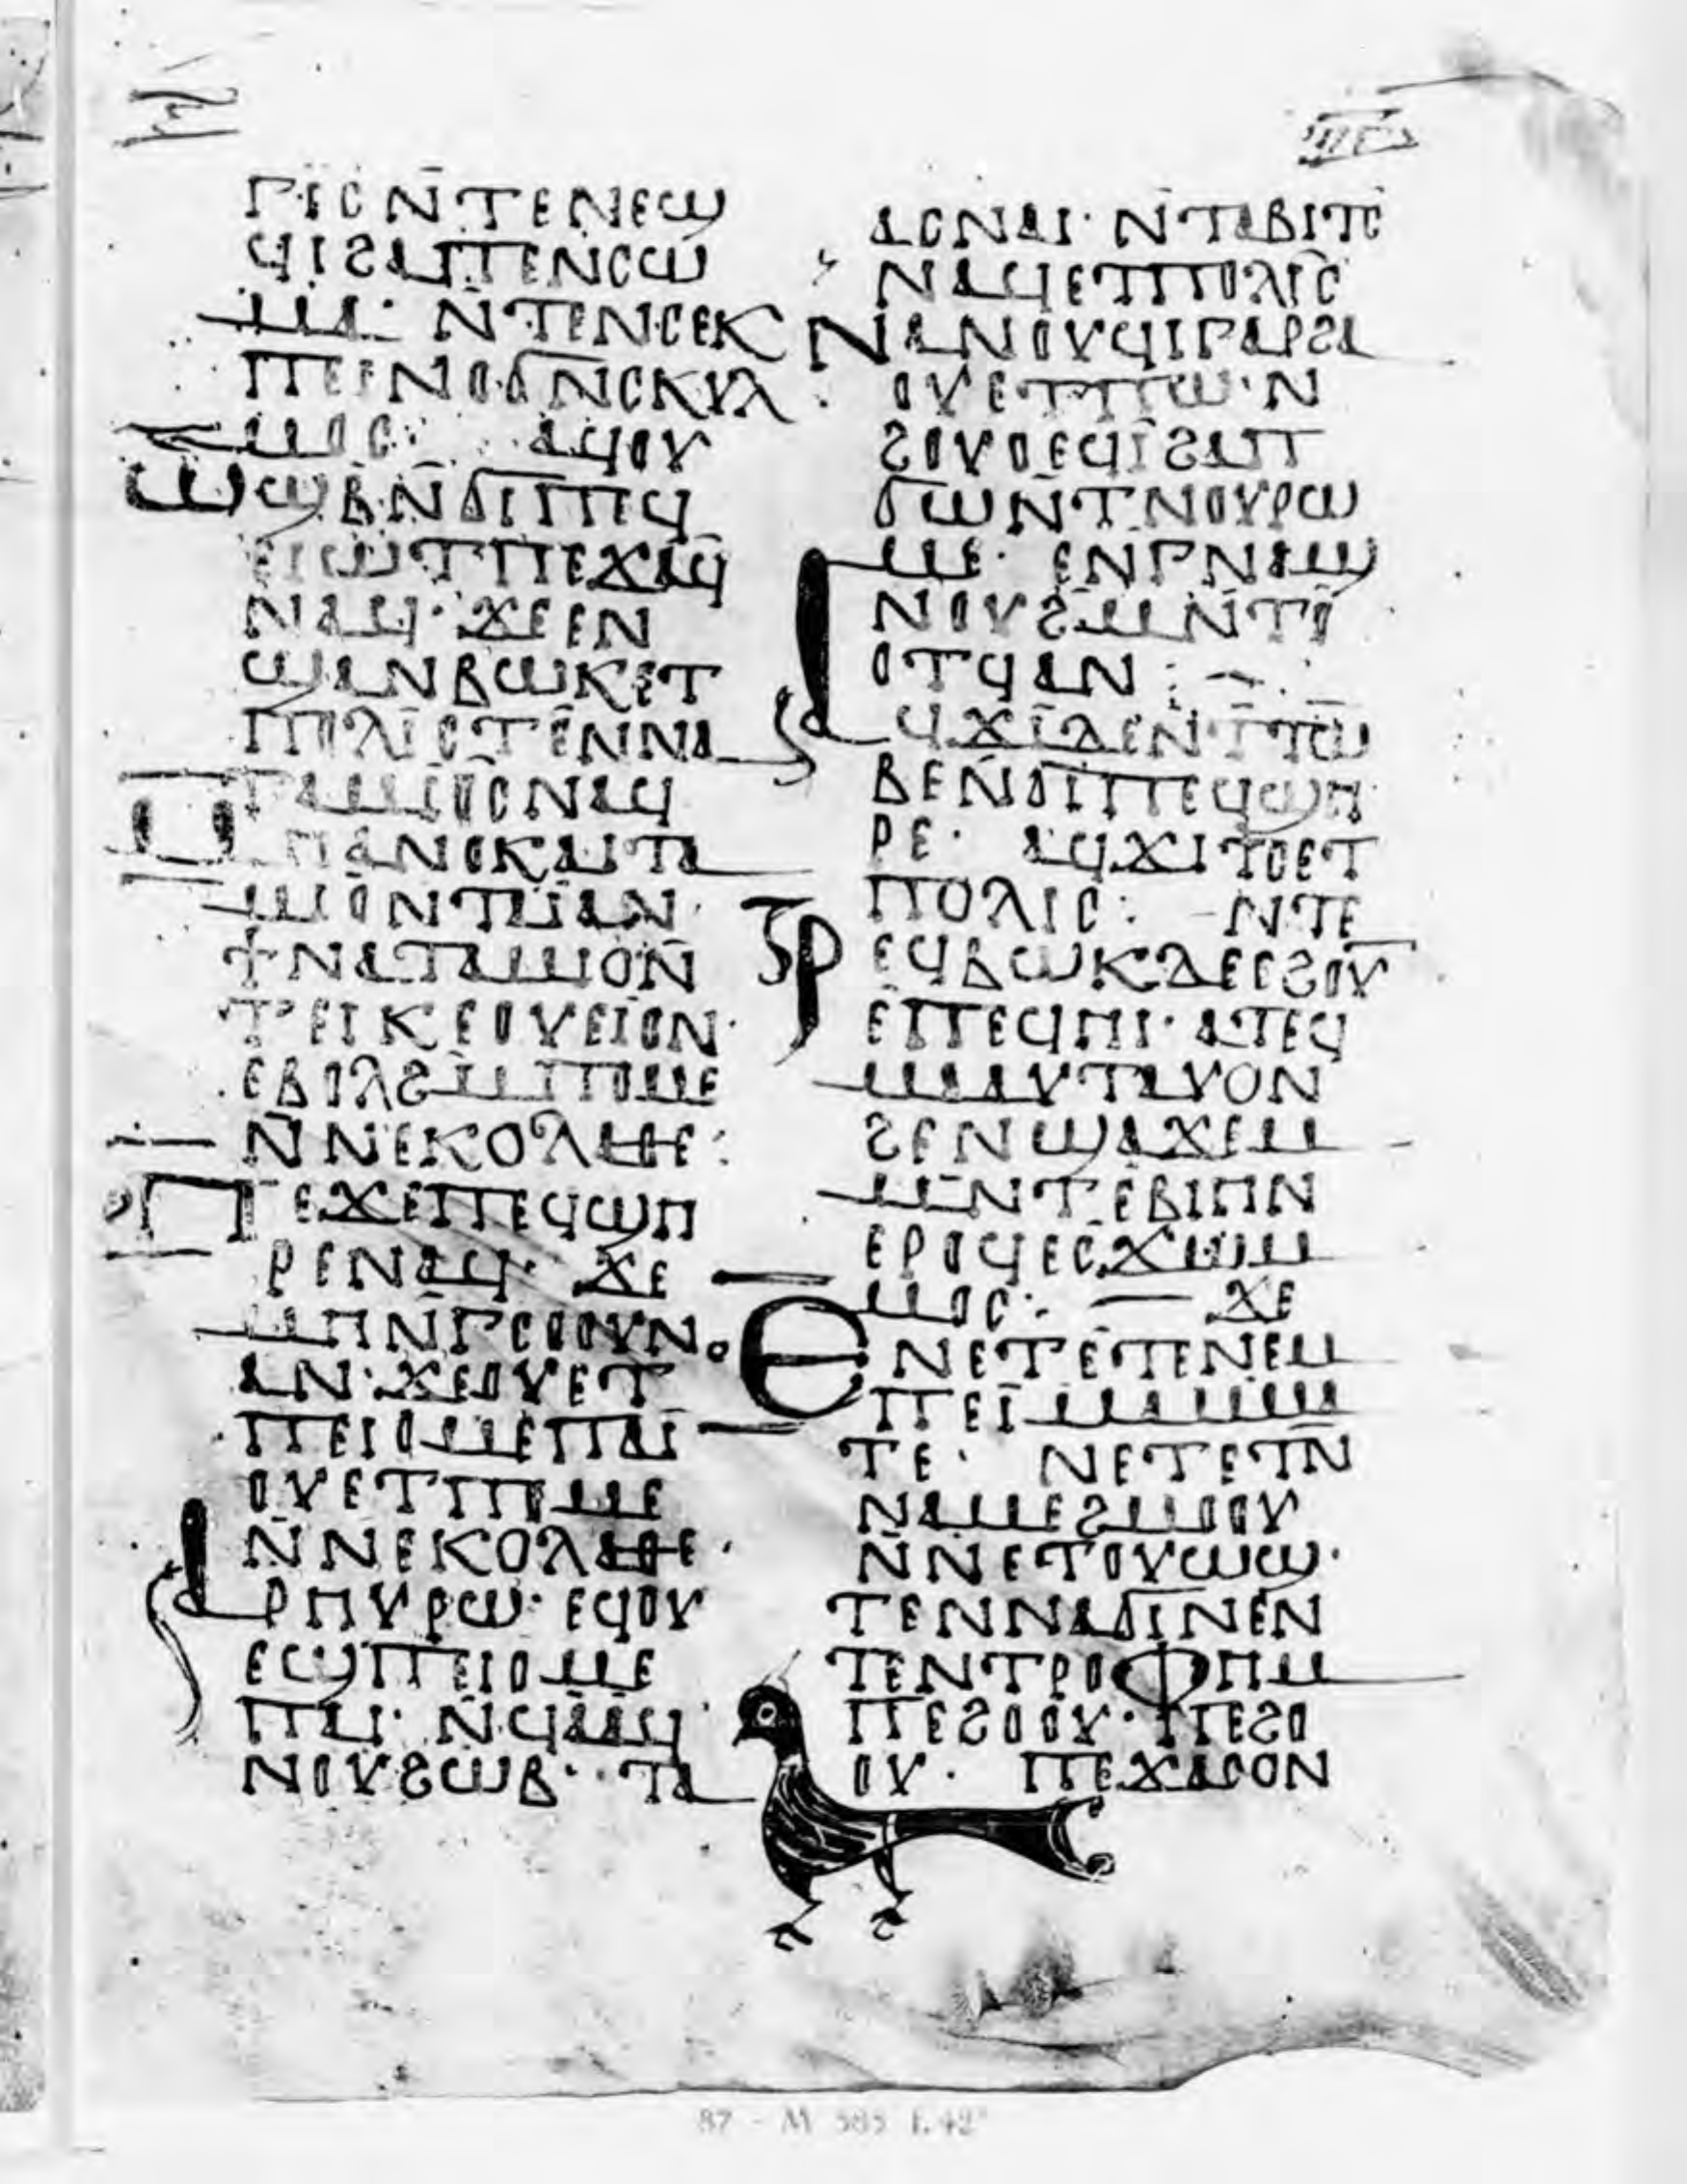 ⲅⲓⲥⲛ̄ⲧⲉⲛⲉϣ
ϥⲓϩⲁⲡⲉⲛⲥⲱ
ⲙⲁ· ⲛ̄ⲧⲉⲛⲥⲉⲕ
ⲡⲉⲓⲛⲟϭⲛⲥⲕⲩⲗ
ⲙⲟⲥ: ⲁϥⲟⲩ
ⲱϣⲃⲛ̄ϭⲓⲡⲉϥ
ⲉⲓⲱⲧⲡⲉϫⲁϥ
ⲛⲁϥ· ϫⲉⲉⲛ
ϣⲁⲛⲃⲱⲕⲉⲧ
ⲡⲟⲗⲓⲥⲧⲉⲛⲛⲁ
ⲧⲁⲙⲟⲟⲥⲛⲁϥ
ⲏⲁⲛⲟⲕⲁⲓⲧⲁ
ⲙⲟⲛⲧⲁⲓⲁⲛ·
ϯⲛⲁⲧⲁⲙⲟⲛ̄
ⲧⲉⲓⲕⲉⲟⲩⲉⲓⲟⲛ·
ⲉⲃⲟⲗϩⲙⲡⲟⲙⲉ
ⲛ̄ⲛⲉⲕⲟⲗⲁⲑⲉ:
ⲡⲉϫⲉⲡⲉϥϣⲏ
ⲣⲉⲛⲁϥ· ϫⲉ
ⲙⲏⲛ̄ⲅⲥⲟⲟⲩⲛ
ⲁⲛ·ϫⲉⲟⲩⲉⲧ
ⲡⲉⲓⲟⲙⲉⲡⲁⲓ
ⲟⲩⲉⲧⲡⲟⲙⲉ
ⲛ̄ⲛⲉⲕⲟⲗⲁⲑⲉ·
ⲁⲣⲏⲩⲣⲱ· ⲉϥⲟⲩ
ⲉϣⲡⲉⲓⲟⲙⲉ
ⲡⲁⲓ· ⲛ̄ϥⲁⲁϥ
ⲛⲟⲩϩⲱⲃ· ⲧⲁ
ⲁⲥⲛⲁⲓ· ⲛ̄ⲧⲁⲃⲓⲧⲥ
ⲛⲁϥⲉⲧⲡⲟⲗⲓⲥ
ⲛⲁⲛⲟⲩϥⲓⲅⲁⲣϩⲁ
ⲟⲩⲉⲧⲡⲱ·ⲛ
ϩⲟⲩⲟⲉϥⲓϩⲁⲡ
ϭⲱⲛ̄ⲧⲛⲟⲩⲣⲱ
ⲙⲉ· ⲉⲛⲅⲛⲁϣ
ⲛⲟⲩϩⲙⲛ̄ⲧⲟ
ⲟⲧϥⲁⲛ:
ⲁϥϫⲓⲁⲉⲛⲧⲧⲱ
ⲃⲉⲛ̄ϭⲓⲡⲉϥϣⲏ
ⲣⲉ· ⲁϥϫⲓⲧⲟⲉⲧ
ⲡⲟⲗⲓⲥ: ⲛⲧⲉ
ⲣⲉϥⲃⲱⲕⲇⲉⲉϩⲟⲩ
ⲉⲡⲉϥⲏⲓ· ⲁⲧⲉϥ
ⲙⲁⲁⲩⲧⲁⲩⲟⲛ
ϩⲉⲛϣⲁϫⲉⲙ
ⲙⲛ̄ⲧⲉⲃⲓⲏⲛ
ⲉⲣⲟϥⲉⲥϫⲱⲙ
ⲙⲟⲥ: ϫⲉ
ⲉⲛⲉⲧⲉⲧⲉⲛⲉⲙ
ⲡⲉⲓⲙⲁⲙⲙ
ⲧⲉ· ⲛⲉⲧⲉⲧⲛ̄
ⲛⲁⲙⲉϩⲙⲟⲟⲩ
ⲛ̄ⲛⲉⲧⲟⲩⲱϣ·
ⲧⲉⲛⲛⲁϭⲓⲛⲉⲛ
ⲧⲉⲛⲧⲣⲟⲫⲏⲙ
ⲡⲉϩⲟⲟⲩ·ⲡⲉϩⲟ
ⲟⲩ· ⲡⲉϫⲁⲥⲟⲛ
87 - M 585 f. 42ᵛ